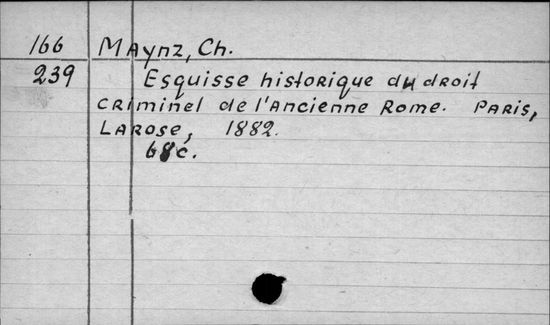 166 Maynz, Ch.
239 Esquisse historique du droit
criminel de l'Ancienne Rome. Paris,
Larose, 1882.
68c.